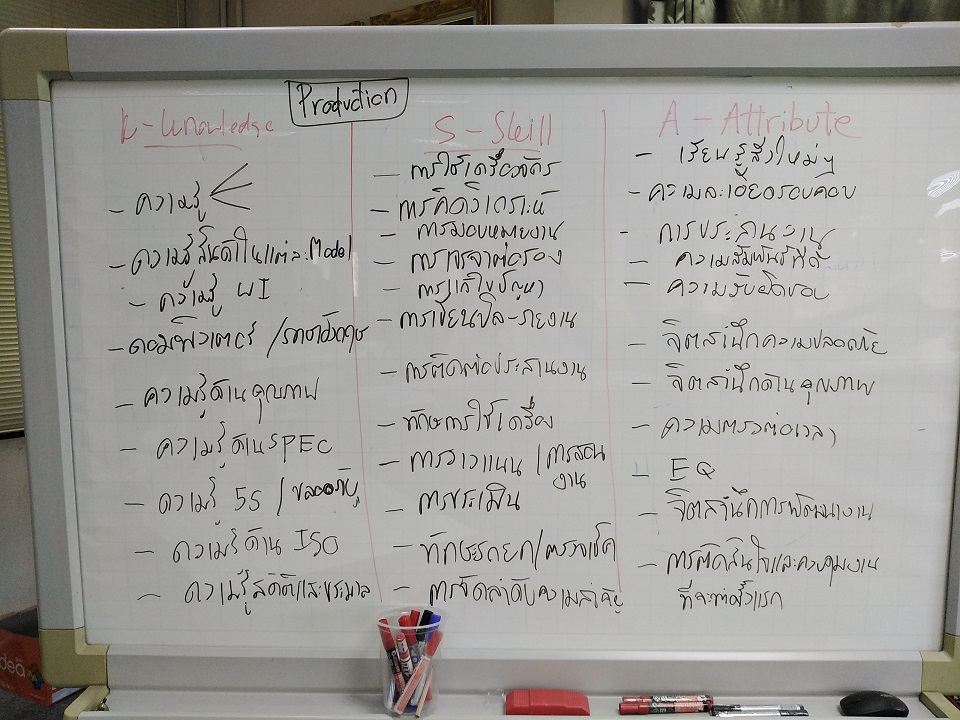 Production
K - Knowledge
- ความรู้
- ความรู้สินค้าในแต่ละ Model
- ความรู้ WI
- คอมพิวเตอร์ / ภาษาอังกฤษ
- ความรู้ด้านคุณภาพ
- ความรู้ด้าน SPEC
- ความรู้ 5ส /
- ความรู้ด้าน ISO
- ความรู้สถิติและ
S - Skill
- การใช้เครื่องจักร
- การคิดวิเคราะห์
- การมอบหมายงาน
- การเจรจาต่อรอง
- การแก้ไขปัญหา
- การเขียนบิล-รายงาน
- การติดต่อประสานงาน
- ทักษะการใช้เครื่อง
- การวางแผน / การสอน
งาน
- การประเมิน
- ทักษะรถยก/ตรวจเช็ค
- การจัดลำดับความสำคัญ
A - Attribute
- เรียนรู้สิ่งใหม่ๆ
- ความละเอียดรอบคอบ
- การประสานงาน
- ความสัมพันธ์ที่ดี
- ความรับผิดชอบ
- จิตสำนึกความปลอดภัย
- จิตสำนึกด้านคุณภาพ
- ความตรงต่อเวลา
- EQ
- จิตสำนึกการพัฒนางาน
- การตัดสินใจและควบคุมงาน
ที่จะทำครั้งแรก
idea